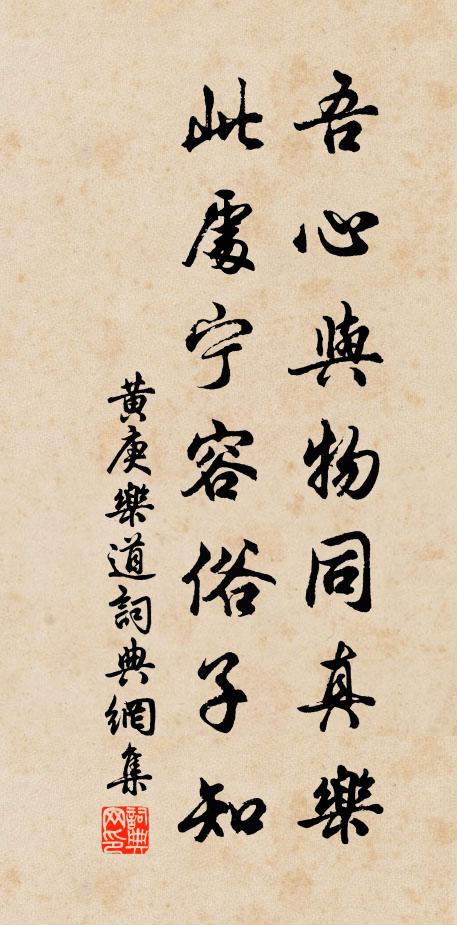 吾心與物同真樂
此處宁容俗子知
黃庚樂道詞典網集
詞典网印